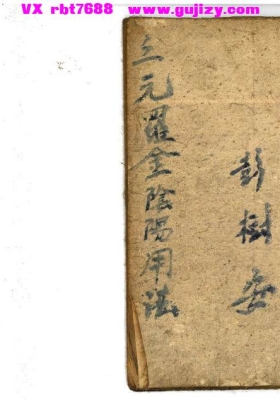 VX rbt7688 www.gujizy.com
三元羅金陰陽用法
彭樹安